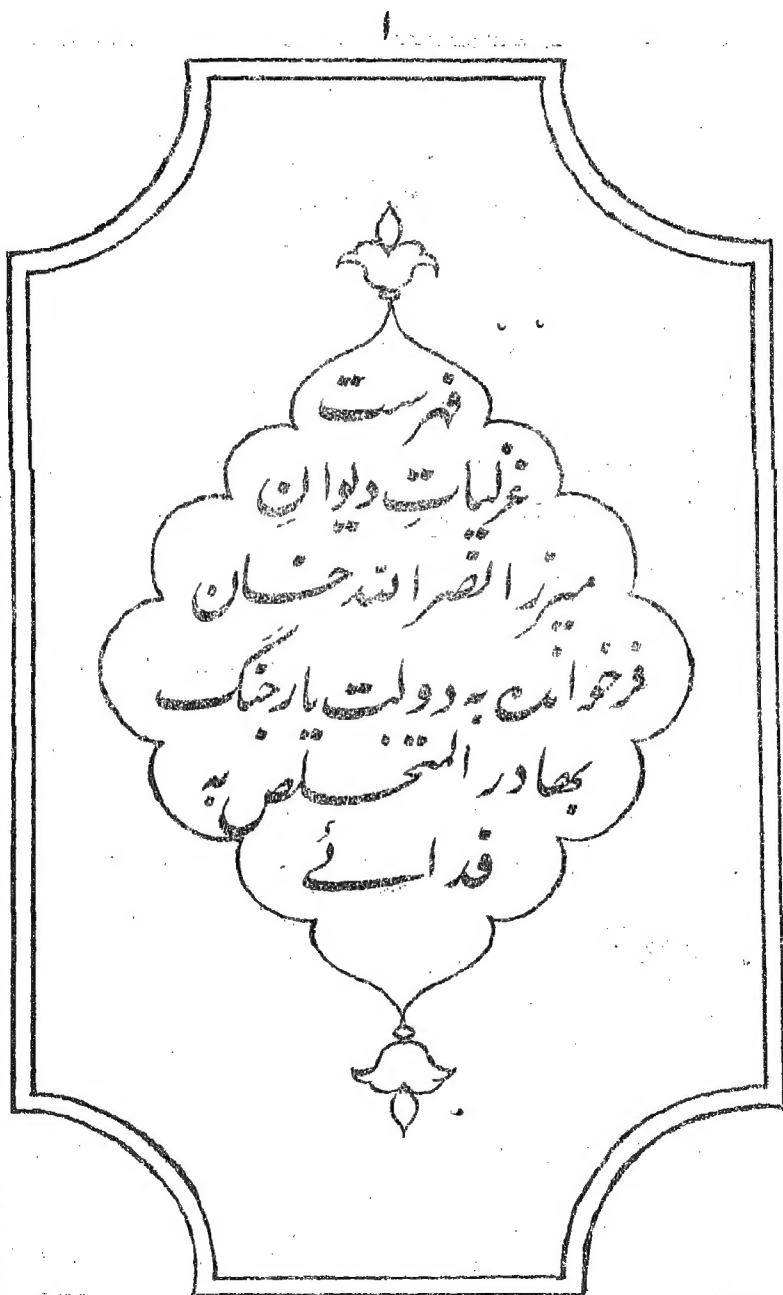 ۱
فهرست
غزلیاتِ دیوانِ
میرزا نصر الله خان
فرخوانده به دولت یار جنگ
بهادر المتخلص به
فدائے